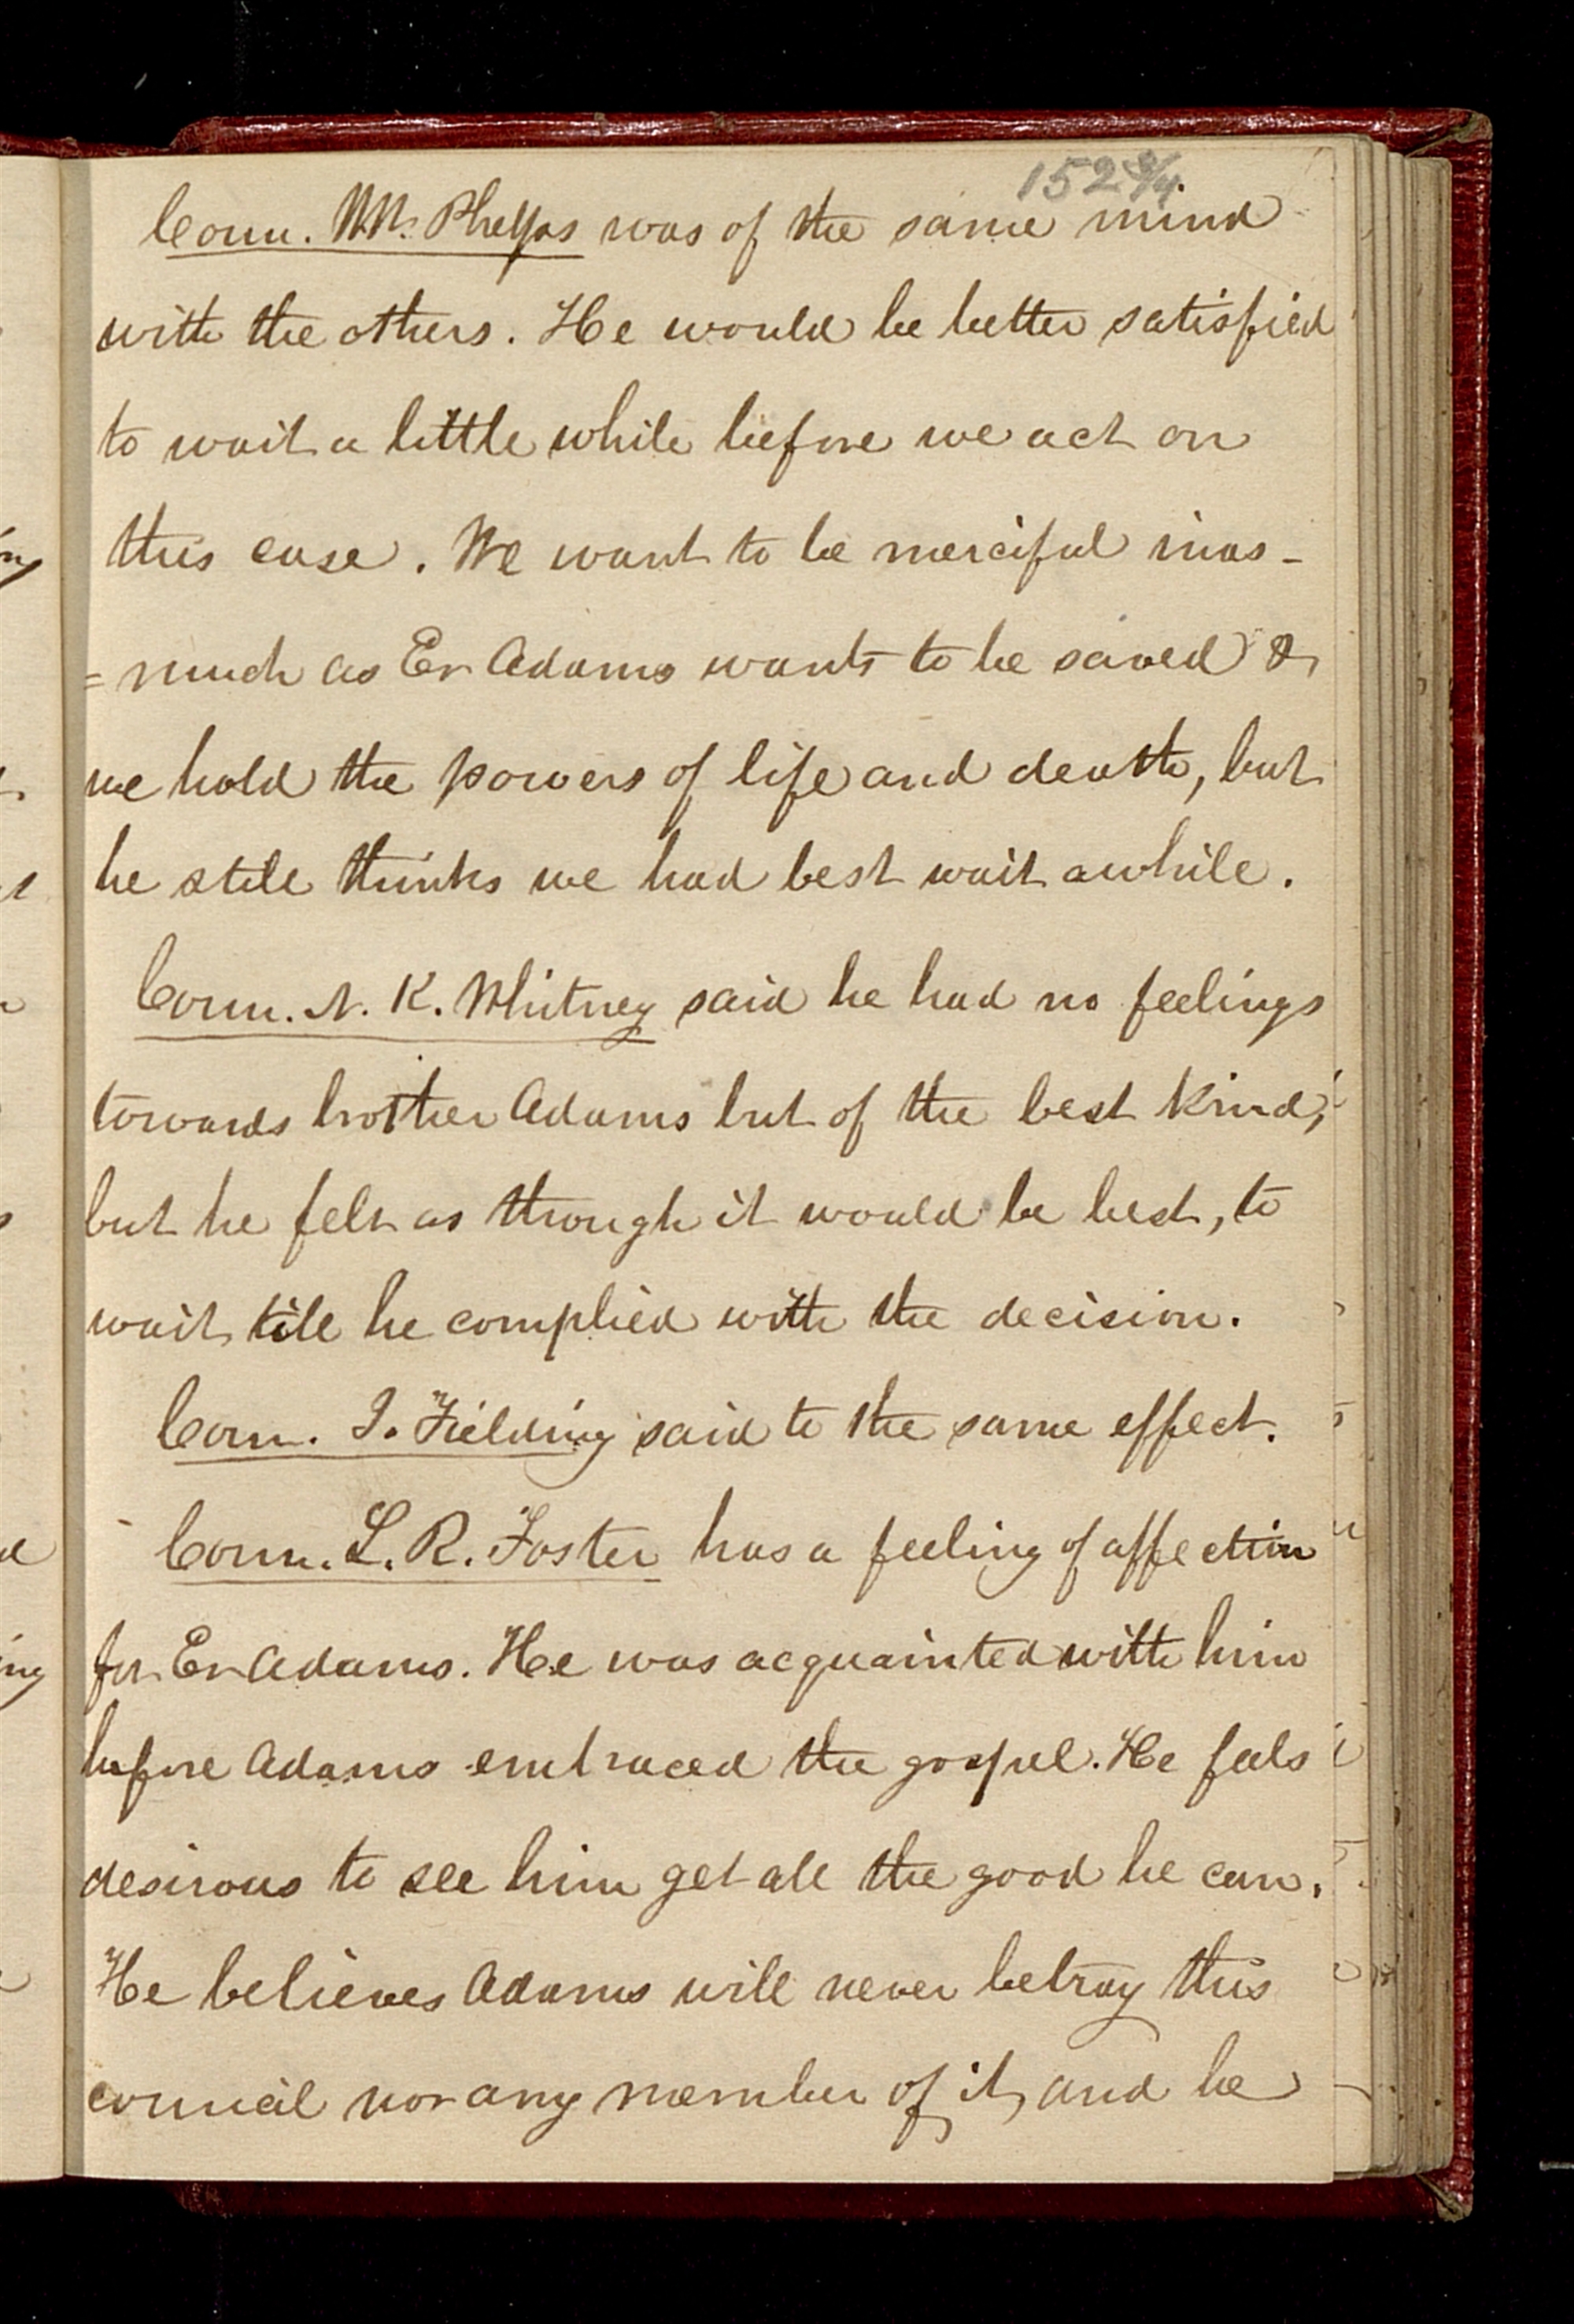 152 3/4
Coun. W.W. Phelps was of the same mind
with the others. He would be better satisfied
to wait a little while before we act on
this case. We want to be merciful inas-
=much as Er Adams wants to be saved &
we hold the powers of life and death, but
he still thinks we had best wait awhile.
Coun. N. K. Whitney said he had no feelings
towards brother Adams but of the best kind,
but he felt as though it would be best, to
wait till he complied with the decision.
Coun. J. Fielding said to the same effect.
Coun. L. R. Foster has a feeling of affection
for Er Adams. He was acquainted with him
before Adams embraced the gospel. He feels
desirous to see him get all the good he can.
He believes Adams will never betray this
council nor any member of it, and he